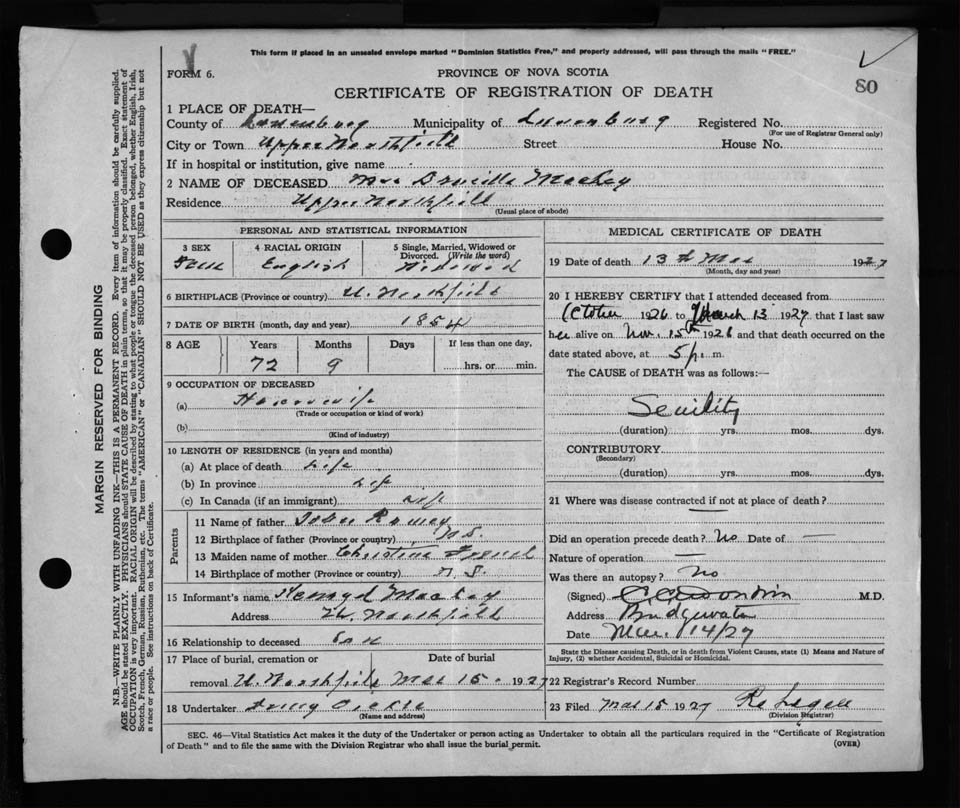 This form if placed in an unsealed envelope marked "Dominion Statistics Free," and properly addressed, will pass through the mails "FREE."
FORM 6.
PROVINCE OF NOVA SCOTIA
CERTIFICATE OF REGISTRATION OF DEATH
80
1 PLACE OF DEATH—
County of Lunenburg Municipality of Lunenburg Registered No.
(For use of Registrar General only)
City or Town Upper Northfield Street House No.
If in hospital or institution, give name
2 NAME OF DECEASED Mrs Drucilla Mackay
Residence Upper Northfield
(Usual place of abode)
PERSONAL AND STATISTICAL INFORMATION
3 SEX 4 RACIAL ORIGIN 5 Single, Married, Widowed or Divorced. (Write the word)
Fem English Widowed
6 BIRTHPLACE (Province or country) U. Northfield
7 DATE OF BIRTH (month, day and year) 1854
8 AGE Years Months Days If less than one day,
72 9 hrs. or min.
9 OCCUPATION OF DECEASED
(a) Housewife
(Trade or occupation or kind of work)
(b)
(Kind of industry)
10 LENGTH OF RESIDENCE (in years and months)
(a) At place of death Life
(b) In province Life
(c) In Canada (if an immigrant) Life
Parents
11 Name of father Ramey
12 Birthplace of father (Province or country) N.S.
13 Maiden name of mother Christina
14 Birthplace of mother (Province or country) N.S.
15 Informant's name Mackay
Address U. Northfield
16 Relationship to deceased Son
17 Place of burial, cremation or removal Date of burial
U. Northfield Mar 15 1927
18 Undertaker
(Name and address)
MEDICAL CERTIFICATE OF DEATH
19 Date of death 13th Mar 1927
(Month, day and year)
20 I HEREBY CERTIFY that I attended deceased from
October 1926 to March 13 1927 that I last saw
her alive on Nov. 15th 1926 and that death occurred on the
date stated above, at 5 p. m.
The CAUSE of DEATH was as follows:—
Senility
(duration) yrs. mos. dys.
CONTRIBUTORY
(Secondary)
(duration) yrs. mos. dys.
21 Where was disease contracted if not at place of death?
—
Did an operation precede death? No Date of —
Nature of operation —
Was there an autopsy? No
(Signed) M.D.
Address Bridgewater
Date Mar. 14/27
State the Disease causing Death, or in death from Violent Causes, state (1) Means and Nature of
Injury, (2) whether Accidental, Suicidal or Homicidal.
22 Registrar's Record Number
23 Filed Mar 15 1927
(Division Registrar)
SEC. 46—Vital Statistics Act makes it the duty of the Undertaker or person acting as Undertaker to obtain all the particulars required in the "Certificate of Registration
of Death" and to file the same with the Division Registrar who shall issue the burial permit.
(OVER)
MARGIN RESERVED FOR BINDING
N.B.—WRITE PLAINLY WITH UNFADING INK—THIS IS A PERMANENT RECORD. Every item of information should be carefully supplied.
AGE should be stated EXACTLY. PHYSICIANS should STATE CAUSE OF DEATH in plain terms, so that it may be properly classified. Exact statement of
OCCUPATION is very important. RACIAL ORIGIN will be described by stating to what people or tongue the deceased person belonged, whether English, Irish,
Scotch, French, German, Russian, Ruthenian, etc. The terms "AMERICAN" or "CANADIAN" SHOULD NOT BE USED as they express citizenship but not
a race or people. See instructions on back of Certificate.